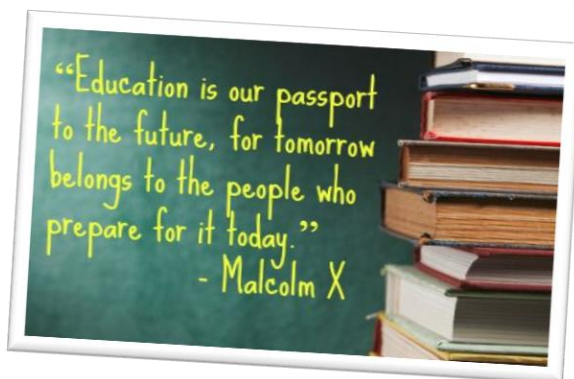 “Education is our passport
to the future, for tomorrow
belongs to the people who
prepare for it today.”
- Malcolm X